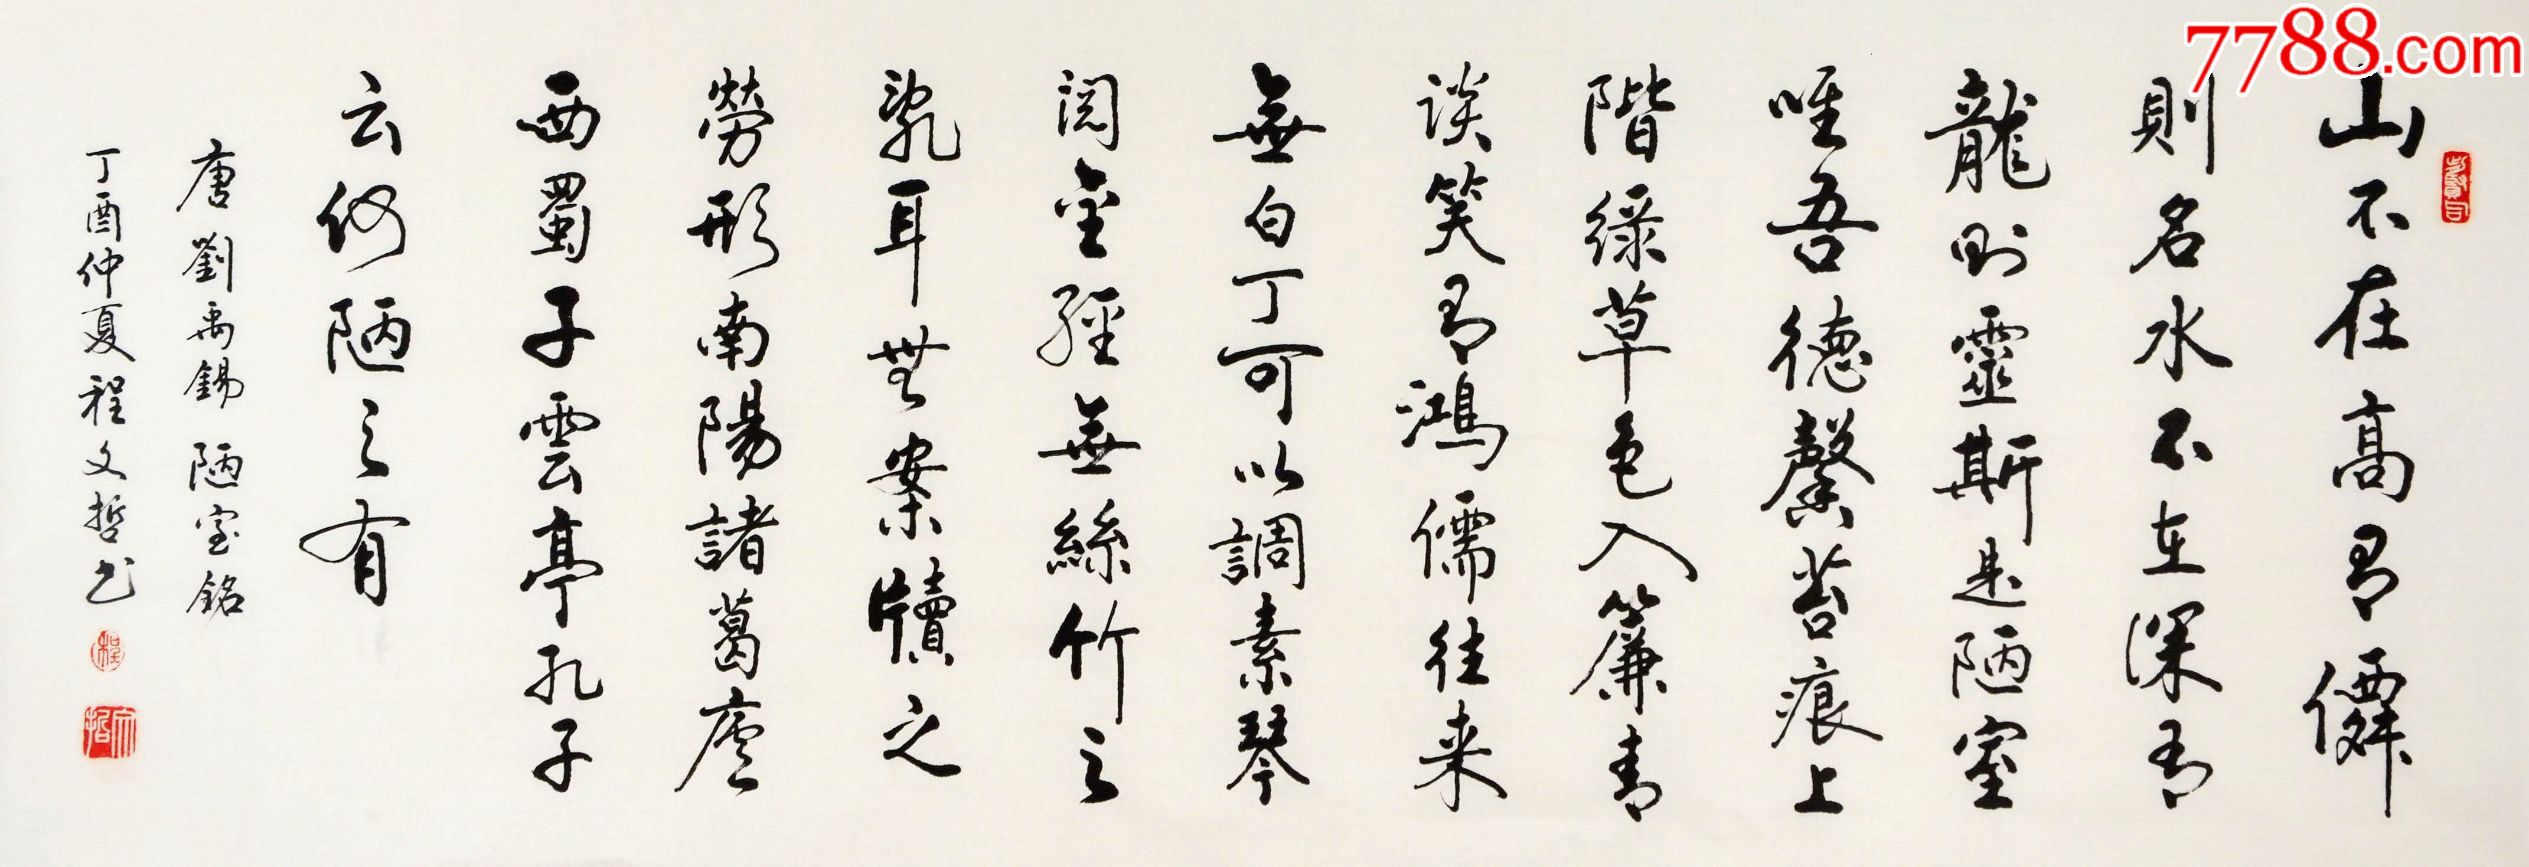 7788.com
山不在高有僊
則名水不在深有
龍則靈斯是陋室
唯吾德馨苔痕上
階綠草色入簾青
談笑有鴻儒往来
無白丁可以調素琴
閱金經無絲竹之
亂耳無案牘之
勞形南陽諸葛廬
西蜀子雲亭孔子
云何陋之有
唐劉禹錫陋室銘
丁酉仲夏程文哲书
程
文哲